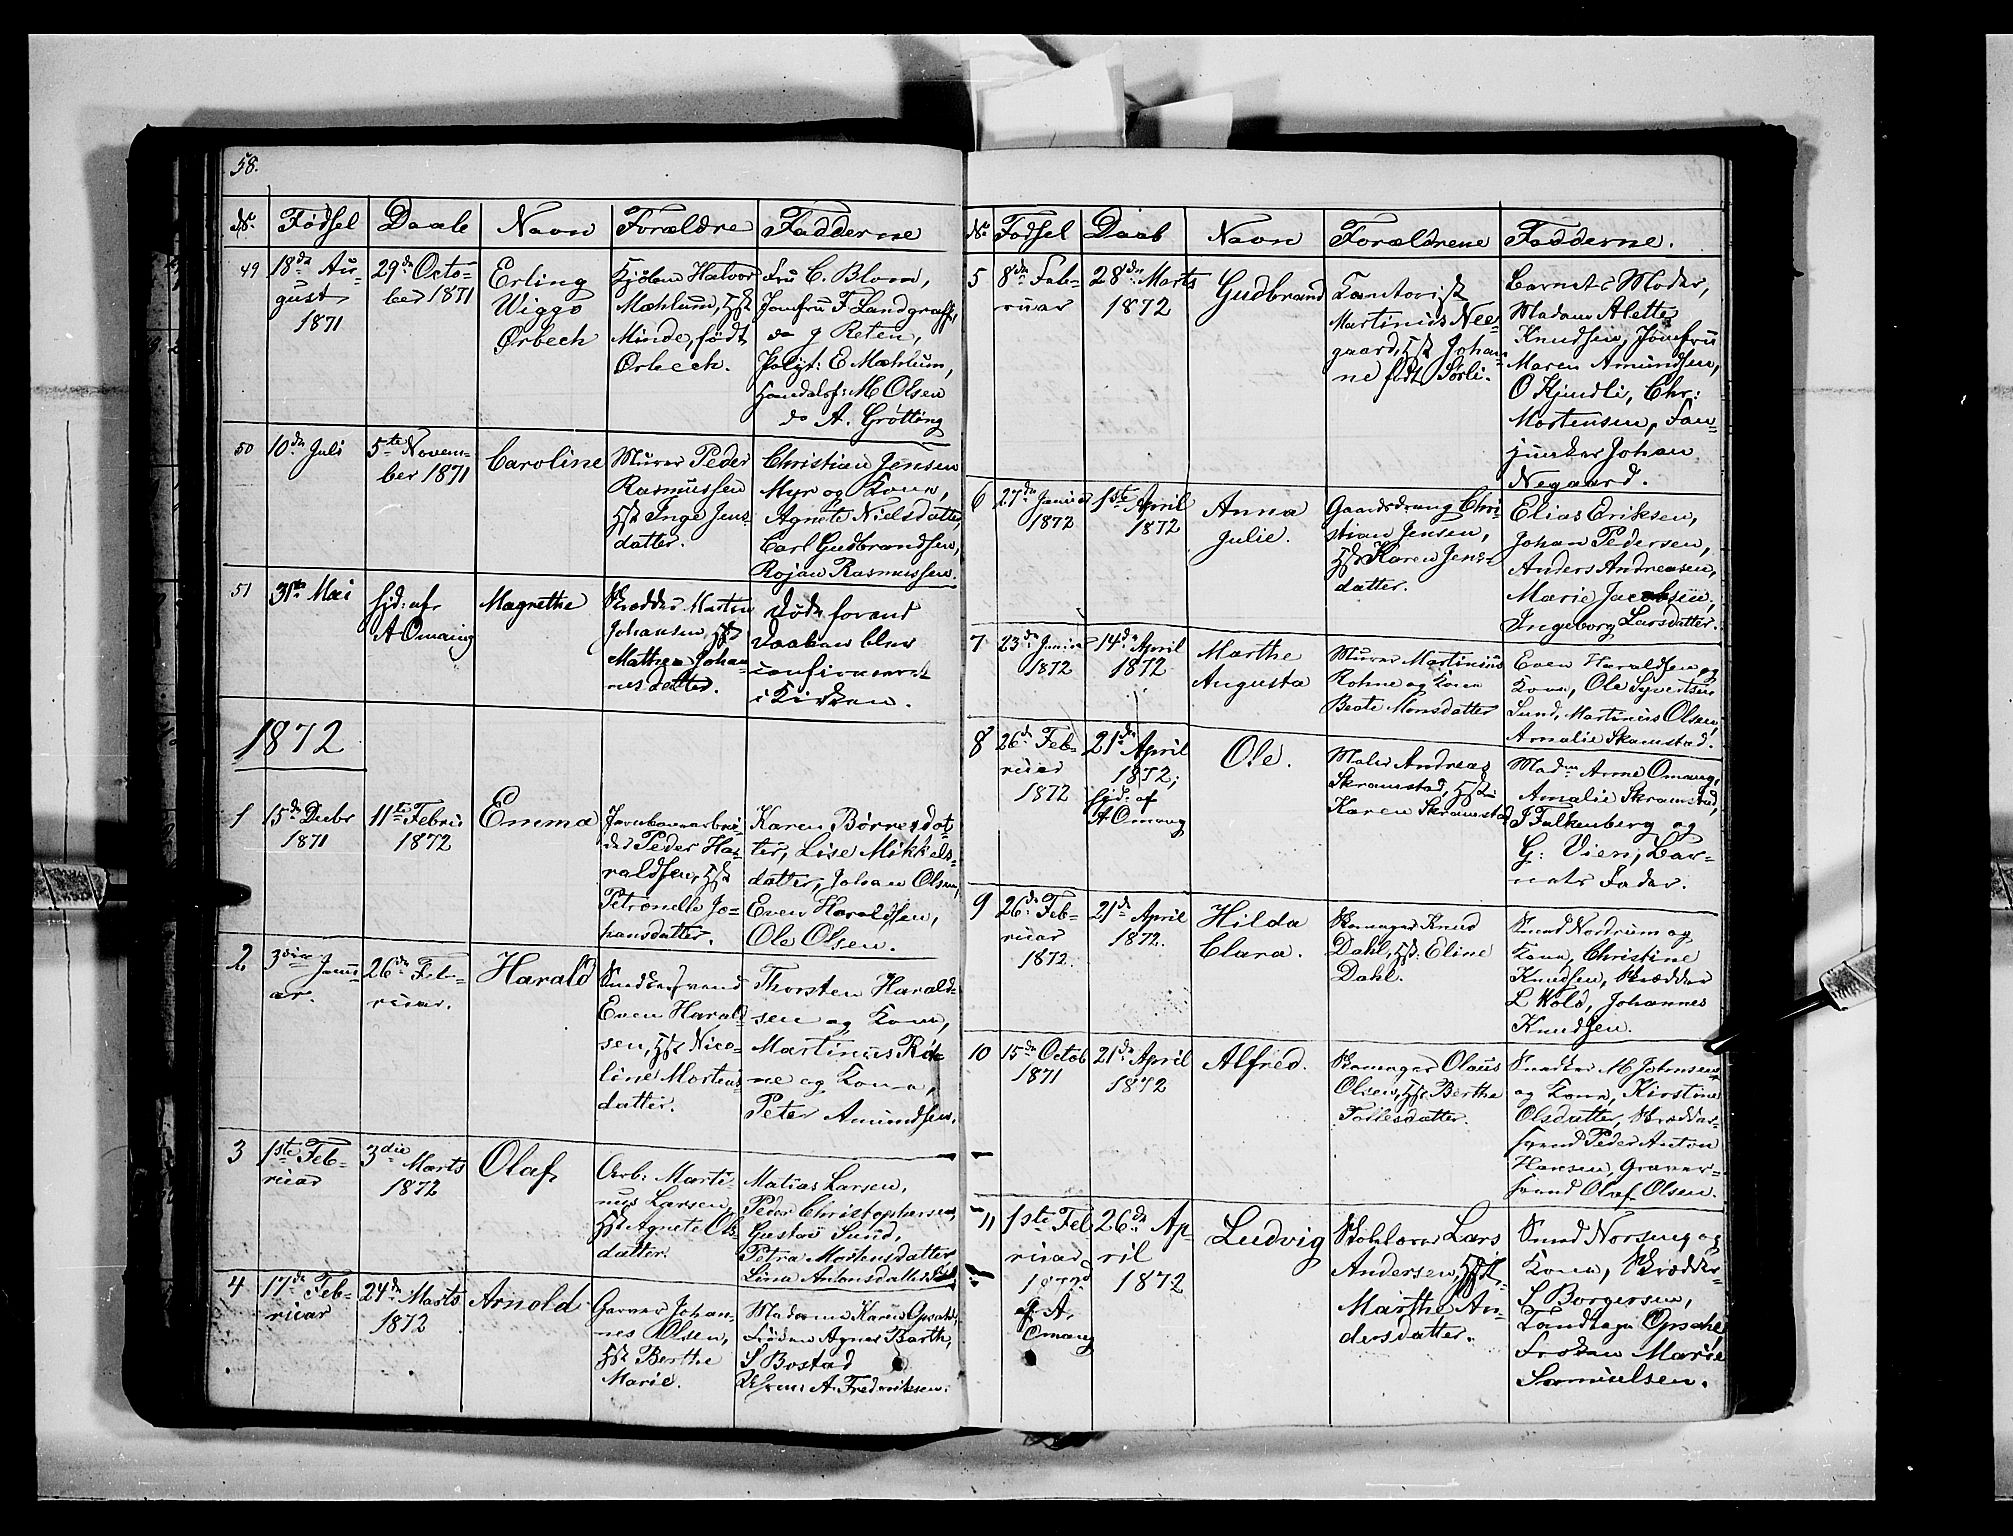 58.
No. Fødsel Daab Navn Forældre Fadderne
49
18de Au-
gust
1871
29de Octo-
ber 1871
Erling
Wiggo
Ørbech
Kjøbm Halvor
Mæhlum, Hst
Minde, født
Ørbech.
Fru C. Blom,
Jomfru F Landgraff,
do J Reten,
Polyt: E Mæhlum,
Handelsf: M Olsen
do A. Grøtting
50
10de Juli
5te Novem-
ber 1871
Caroline
Murer Peder
Rasmussen
Hst Inge Jens-
datter.
Christian Jensen
Myr og Kone,
Agnete Nielsdatter,
Carl Gudbrandsen,
Rojan Rasmussen.
51
31te Mai
Hjd: af
A Omang
Magnethe
Skrædder Martin
Johansen, Hst
Mathea Johan-
nesdatter.
Døde forend
Daaben blev
confirmeret
i Kirken.
1872
1
15de Decbr
1871
11te Febru
1872
Emma
Peder Ha-
raldsen, Hst
Petronelle Jo-
hansdatter.
Karen Børresdat-
ter, Lise Mikkels-
datter, Johan Olsen,
Even Haraldsen,
Ole Olsen.
2
3die Janu-
ar.
26de Feb-
ruar.
Harald
Snedkersvend
Even Harald-
sen, Hst Nico-
line Mortens-
datter.
Thorsten Harald-
sen og Kone,
Martinus Roh-
ne og Kone,
Peter Amundsen.
3
1ste Feb-
ruar
3die Marts
1872
Olaf
Arb: Marti-
nus Larsen,
Hst Agnete Ols-
datter.
Matias Larsen,
Peder Christophersen,
Gustav Sund,
Petra Mortensdatter
Lina Antonsdatter
4
17de Feb-
ruar
24de Marts
1872
Arnold
Garver Johan-
nes Olsen,
Hst Berthe
Marie.
Madame Karen Opsahl,
Frøken Agnes Barth,
S Bostad
A. Frederiksen.
No Fødsel Daab Navn Forældrene Fadderne.
5
8de Feb-
ruar
28de Marts
1872
Gudbrand
Kontorist
Martinius Nee-
gaard, Hst Johan-
ne født Sørli.
Barnets Moder,
Madam Alette
Knudsen, Jomfru
Maren Amundsen,
O Kjendli, Chr:
Mortensen, Fan-
junker Johan
Negaard.
6
27de Januar
1872
1ste April
1872
Anna
Julie.
Gaardsdreng Chri-
stian Jensen,
Hst Karen Jens-
datter.
Elias Eriksen,
Johan Pedersen,
Anders Andreasen,
Marie Jacobsen,
Ingeborg Larsdatter.
7
23de Januar
1872
14de April
1872
Marthe
Augusta
Murer Martinius
Rohne og Kone
Beate Monsdatter
Even Haraldsen og
Kone, Ole Syvertsen
Sund, Martinus Olsen,
Amalie Skramstad.
8
26de Feb-
ruar
1872
21de April
1872;
hjd: af
A Omang
Ole.
Maler Andreas
Skramstad, Hst:
Karen Skramstad
Madm Anne Omang,
Amalie Skramstad,
J Falkenberg og
G: Vien, Bar-
nets Fader.
9
26de Feb-
ruar
1872.
21de April
1872.
Hilda
Clara.
Skomager Knud
Dahl, Hst: Eline
Dahl.
Smed Nordrum og
Kone, Christine
Knudsen, Skrædder
L Wold, Johannes
Knudsen.
10
15de Octob
1871
21de April
1872
Alfred.
Skomager Olaus
Olsen, Hst Berthe
Tollesdatter.
Snedker M Johnsen
og Kone, Kirstine
Olsdatter, Skrædder-
svend Peder Anton
Hansen, Garver-
svend Olaf Olsen.
11
1ste Feb
ruar
1872
af A.
Omang
26de Ap-
ril
1872
Ludvig
Skoleholder Lars
Andersen, Hst,
Marthe An-
dersdatter.
Smed Norseng og
Kone, Skrædder-
S Borgersen,
Tandlæge Opsahl,
Frøken Marie
Samuelsen.